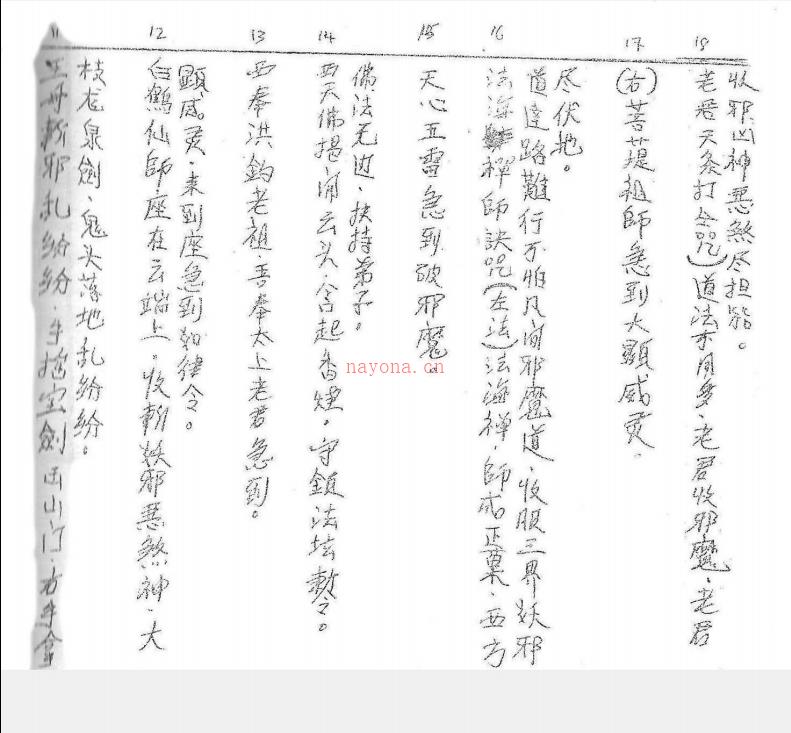 11
王母斬邪乱紛紛、手揸宝劍出山门、右手拿
枝龙泉劍、鬼头落地乱紛紛。
12
白鶴仙師座在云端上、收斬妖邪恶煞神、大
顕威灵、来到座急到如律令。
13
西奉洪鈞老祖、吾奉太上老君急到。
14
西天佛揭闹云头、含起香煙。守鎮法坛敕令。
佛法无边、扶持弟子。
15
天心五雷急到破邪魔.
16
法海禅師訣咒(左法)法海禅、師成正菓、西方
道達路難行不怕凡间邪魔道、收服三界妖邪
尽伏地。
17
(右)菩提祖師急到大顕威灵.
18
老君天打咒)道法用多、老君收邪魔、老君
收邪凶神恶煞尽担
nayona.cn